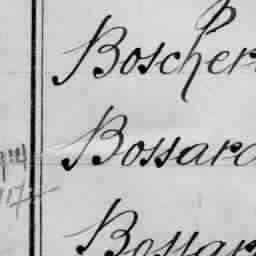 Boscher
Bossard
Bossar